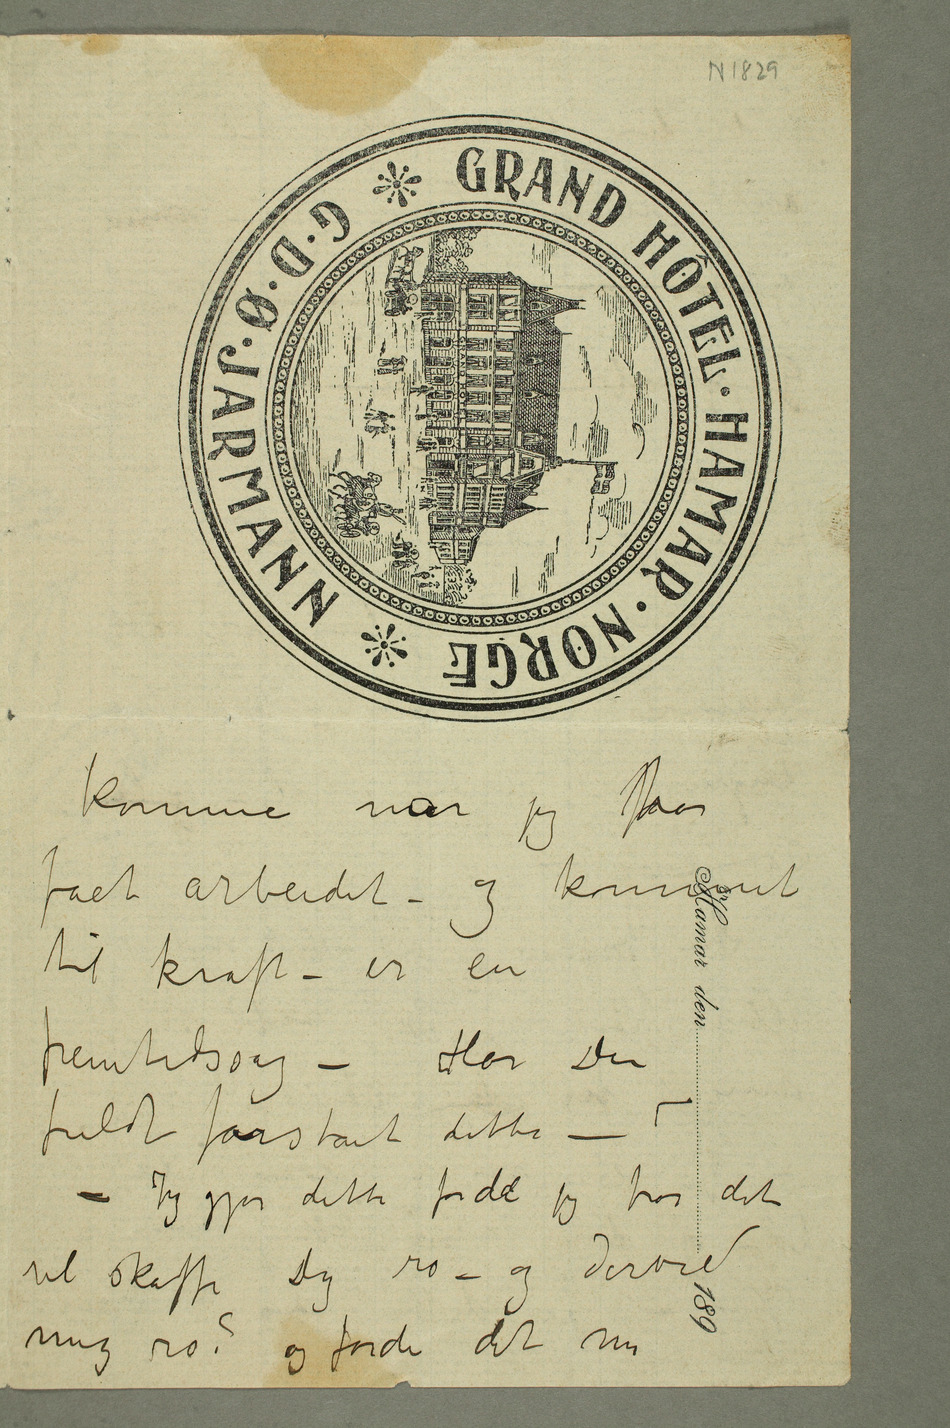 N 1829
GRAND HÔTEL · HAMAR · NORGE
G · D · Ø · JARMANN
Hamar den 189
komme når jeg har
fået arbeidet – og kommet
til kraft – er en
fremtidssag – Har Du
fuldt forstået dette –
– Jeg gjør dette fordi jeg tror det
vil skaffe Dig ro – og derved
mig ro? og fordi det nu